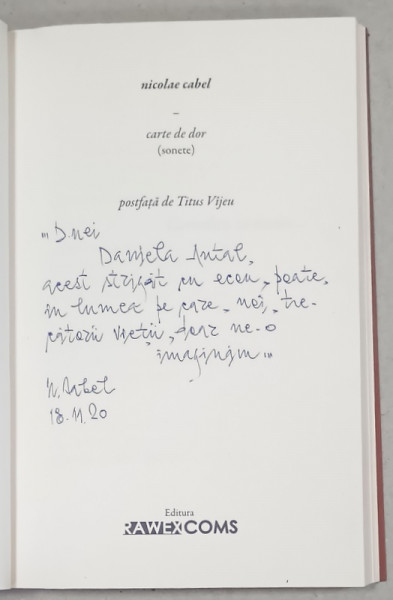 nicolae cabel
–
carte de dor
(sonete)
postfață de Titus Vîjeu
„ D.nei
Daniela Antal,
acest strigăt cu ecou, poate,
în lumea pe care, noi, tre-
cătorii vieții, doar ne-o
imaginăm...
N. Cabel
18.11.20
Editura
RAWEXCOMS